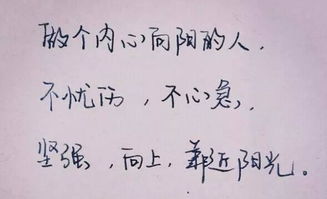 做个内心向阳的人.
不忧伤，不心急，
坚强，向上，靠近阳光。